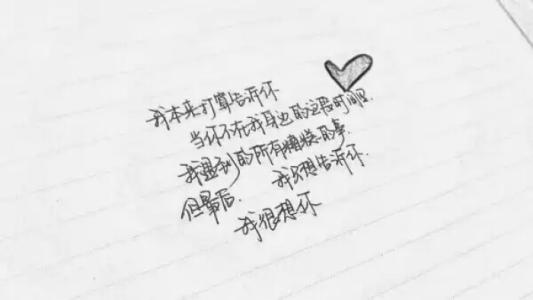 我本来打算告诉你
当你不在我身边的这段时间里
我遇到的所有糟糕的事
但最后. 我只想告诉你.
我很想你